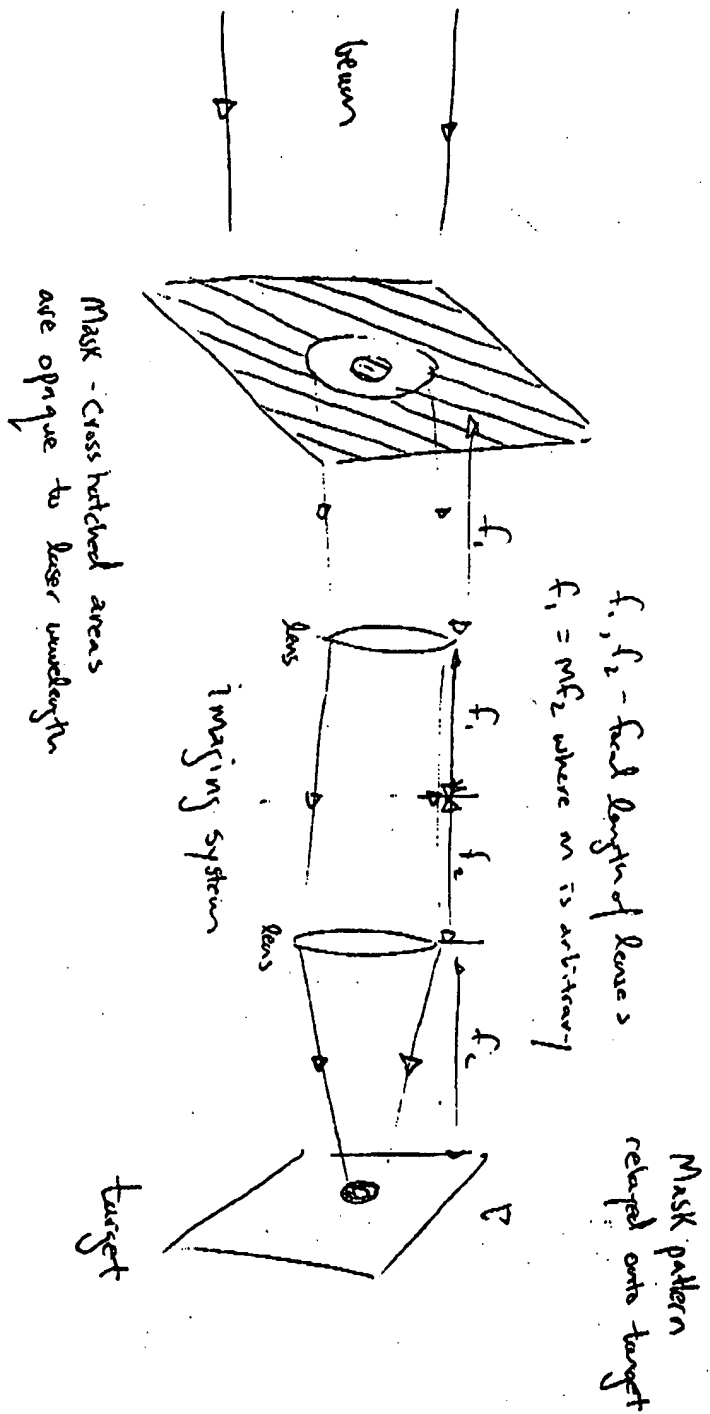 beam
Mask - Cross hatched areas
are opaque to laser wavelength
f₁
f₁, f₂ - focal length of lenses
f₁ = Mf₂ where M is arbitrary
lens
f₁
f₂
imaging system
lens
f₂
Mask pattern
relayed onto target
target